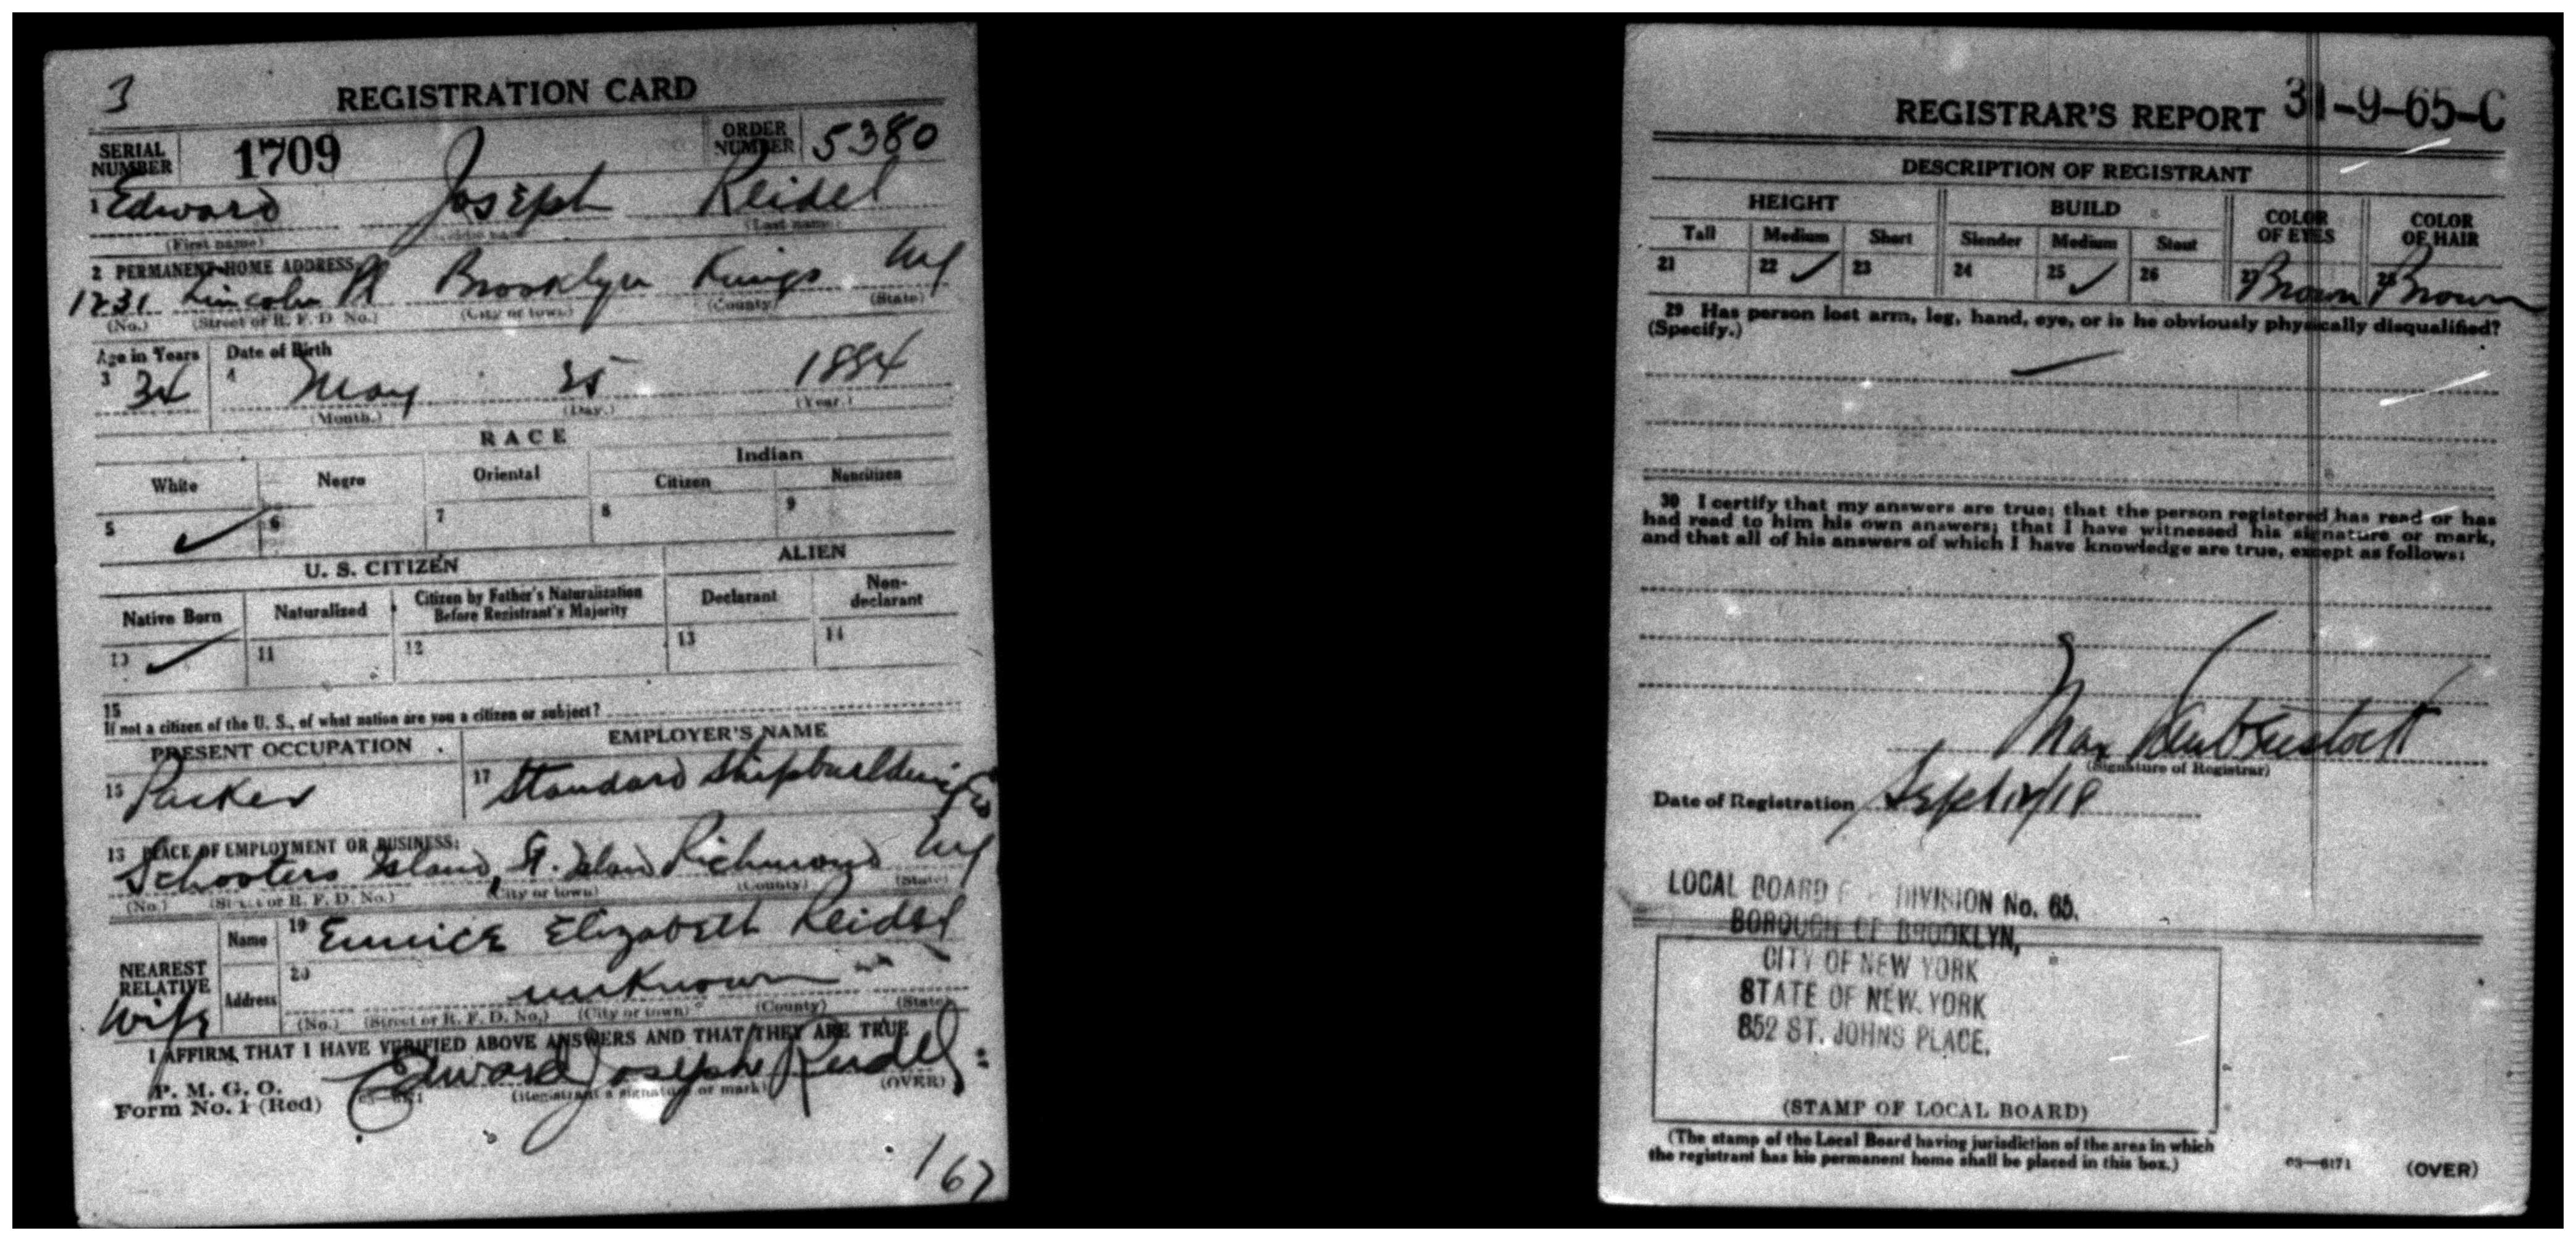 3
REGISTRATION CARD
SERIAL NUMBER 1709 ORDER NUMBER 5380
1 Edward Joseph Reidel
(First name) (Middle name) (Last name)
2 PERMANENT HOME ADDRESS:
1231 Lincoln Pl Brooklyn Kings NY
(No.) (Street or R. F. D. No.) (City or town) (County) (State)
Age in Years Date of Birth
3 34 4 May 25 1884
(Month.) (Day.) (Year.)
RACE
White Negro Oriental Indian
Citizen Noncitizen
5 ✓ 6 7 8 9
U. S. CITIZEN ALIEN
Native Born Naturalized Citizen by Father's Naturalization Before Registrant's Majority Declarant Non-declarant
10 ✓ 11 12 13 14
15
If not a citizen of the U. S., of what nation are you a citizen or subject?
PRESENT OCCUPATION EMPLOYER'S NAME
16 Packer 17 Standard Shipbuilding Co
18 PLACE OF EMPLOYMENT OR BUSINESS:
Schooters Island, St. Island Richmond NY
(No.) (Street or R. F. D. No.) (City or town) (County) (State)
NEAREST RELATIVE Name 19 Eunice Elizabeth Reidel
Wife Address 20 unknown
(No.) (Street or R. F. D. No.) (City or town) (County) (State)
I AFFIRM THAT I HAVE VERIFIED ABOVE ANSWERS AND THAT THEY ARE TRUE
P. M. G. O.
Form No. 1 (Red) Edward Joseph Reidel
(Registrant's signature or mark) (OVER)
167
REGISTRAR'S REPORT 31-9-65-C
DESCRIPTION OF REGISTRANT
HEIGHT BUILD COLOR OF EYES COLOR OF HAIR
Tall Medium Short Slender Medium Stout
21 22 ✓ 23 24 25 ✓ 26 27 Brown 28 Brown
29 Has person lost arm, leg, hand, eye, or is he obviously physically disqualified?
(Specify.)
30 I certify that my answers are true; that the person registered has read or has
had read to him his own answers; that I have witnessed his signature or mark,
and that all of his answers of which I have knowledge are true, except as follows:
Max
(Signature of Registrar)
Date of Registration Sept 12/18
LOCAL BOARD DIVISION No. 65.
BOROUGH OF BROOKLYN,
CITY OF NEW YORK
STATE OF NEW YORK
852 ST. JOHNS PLACE.
(STAMP OF LOCAL BOARD)
(The stamp of the Local Board having jurisdiction of the area in which
the registrant has his permanent home shall be placed in this box.)
03—6171 (OVER)